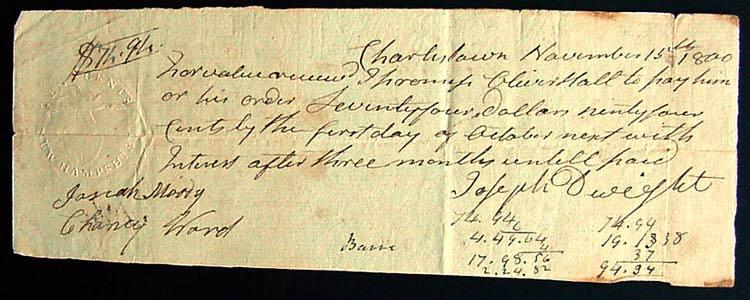 $74.94.
Charlestown November 15th 1800
For value received I promis Oliver Hall to pay him
or his order Seventyfour Dollars ninty four
Cents by the first day of October next with
Interest after three months untill paid
Joseph Dwight
Josiah Moody
Chancy Ward
CENTS
NEW HAMPSHIRE
74.94
6
4.49.64
4
17.98.56
2.24.82
74.94
19.1338
37
94.34